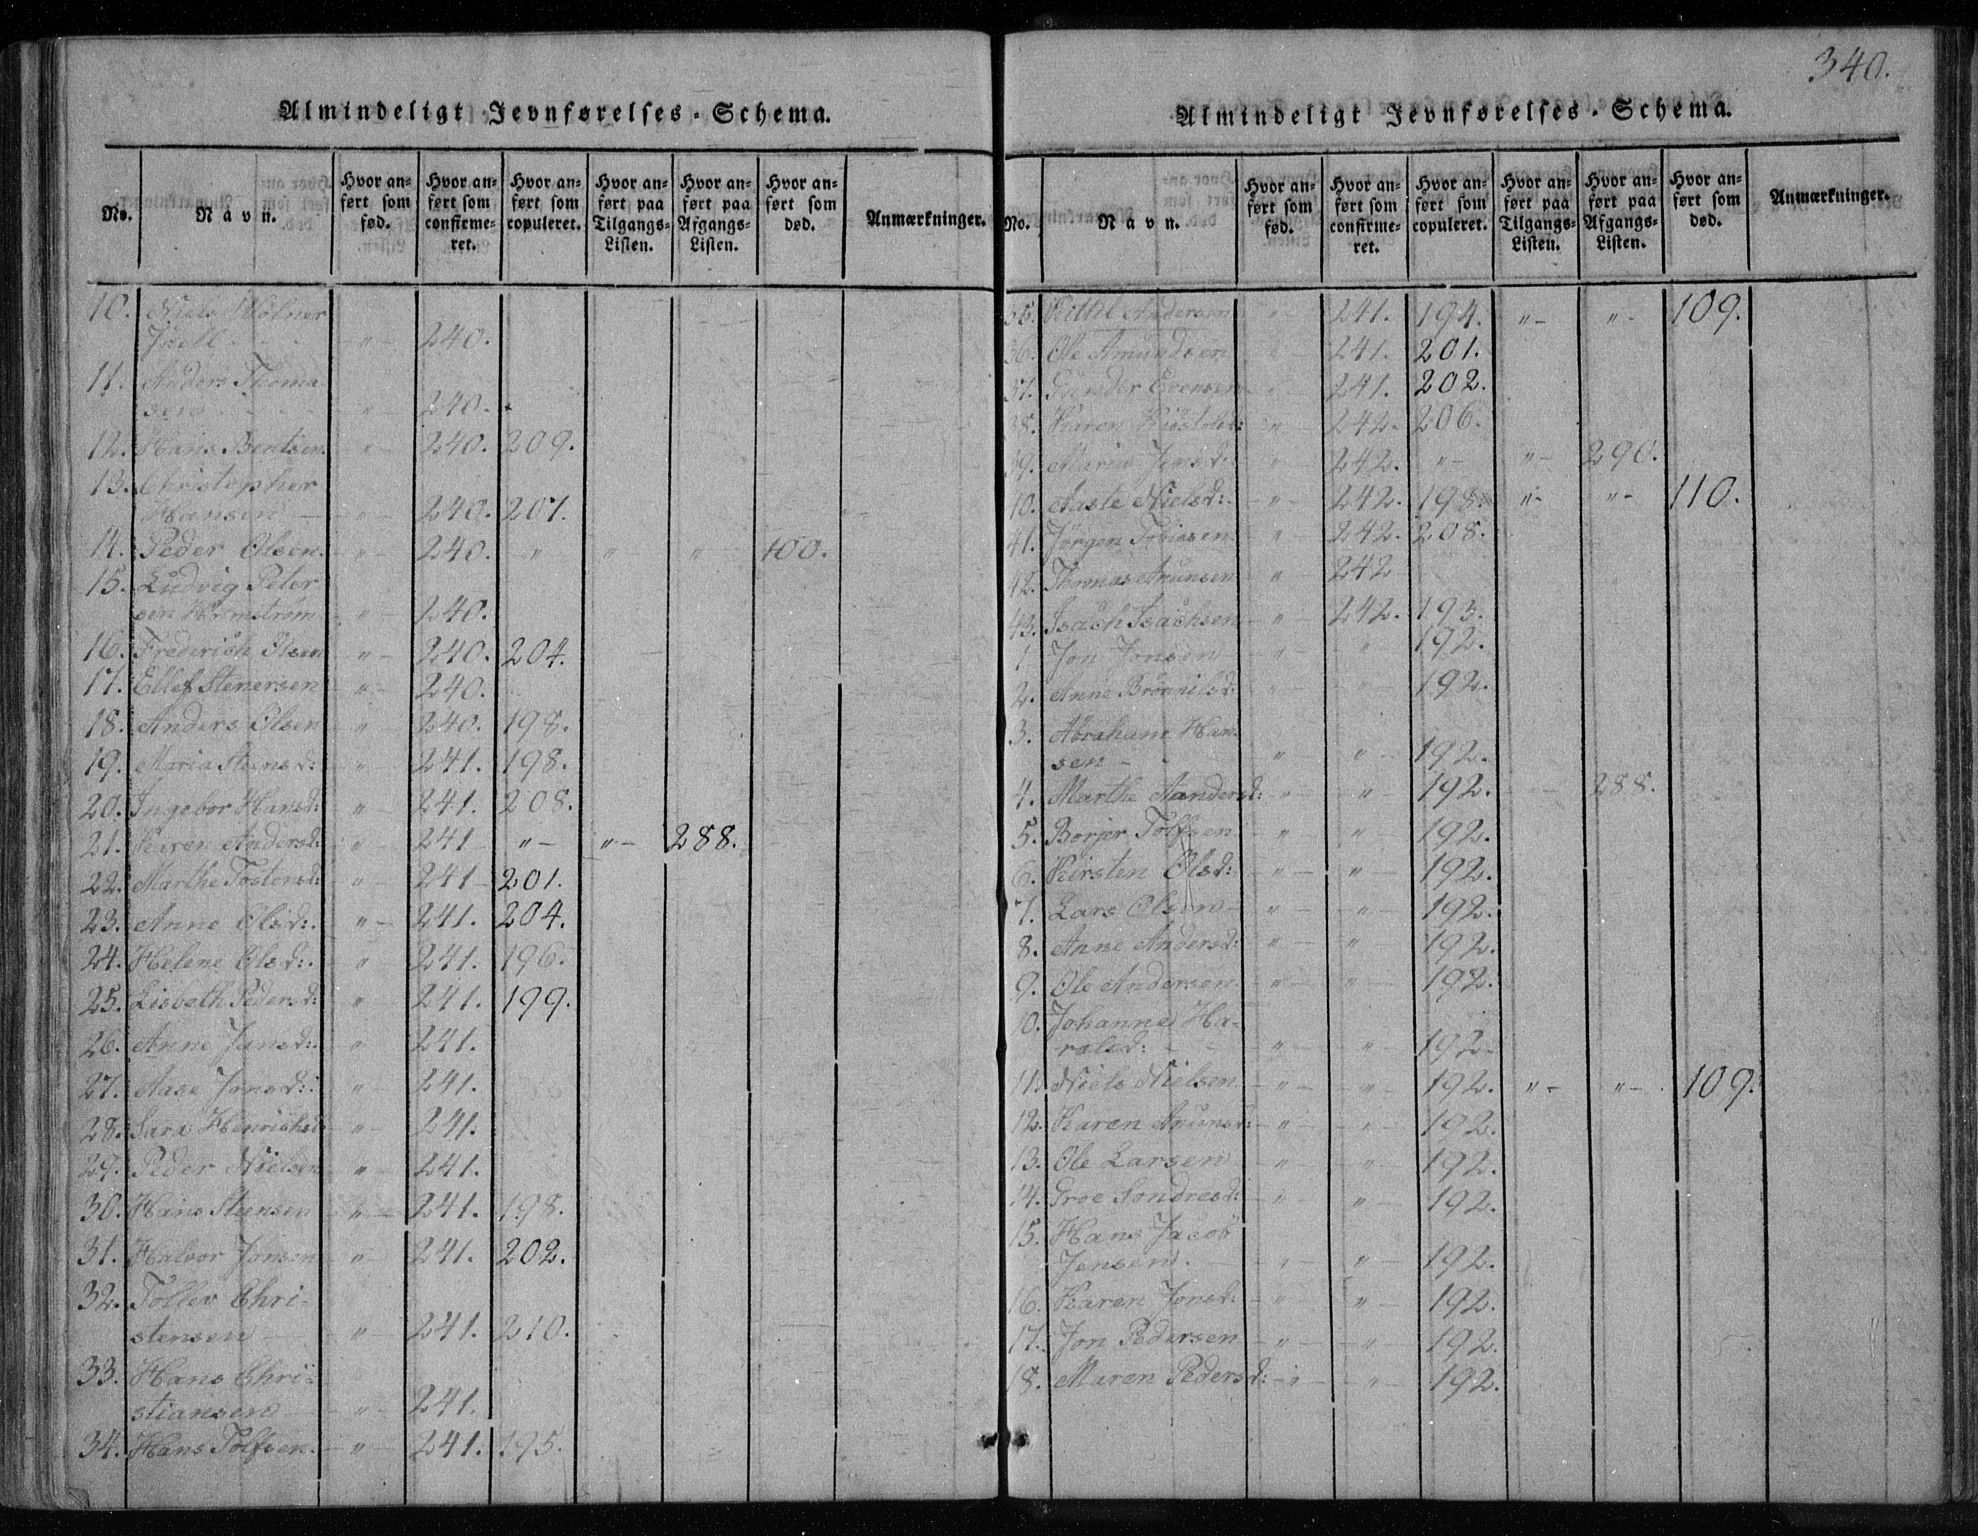 Almindeligt Jevnførelses-Schema.
No. Navn. Hvor anført som fød. Hvor anført som confirmeret. Hvor anført som copuleret. Hvor anført paa Tilgangs-Listen. Hvor anført paa Afgangs-Listen. Hvor anført som død. Anmærkninger.
10. Niels
" 240.
11. Anders Thoma-
sen " 240.
12. Hans Bentsen " 240. 209.
13. Christopher
Hansen " 240. 207.
14. Peder Olsen " 240. " " " 100.
15. Ludvig Peter-
sen Holmstrøm " 240.
16. Frederich Olsen " 240. 204.
17. Ellef Stenersen " 240.
18. Anders Olsen " 240. 198.
19. Maria Steensd: " 241. 198.
20. Ingebor Hansd: " 241. 208.
21. Karen Andersd: " 241 " " 288.
22. Marthe Tostensd: " 241 201.
23. Anne Olsd: " 241. 204.
24. Helene Olsd: " 241. 196.
25. Lisbeth Pedersd: " 241. 199.
26. Anne Jansd: " 241.
27. Aase Jonsd: " 241.
28. Sara Henrichsd: " 241.
29. Peder Nielsen " 241.
30. Hans Steensen " 241. 198.
31. Halvor Jonsen " 241. 202.
32. Tollev Chri-
stensen " 241. 210.
33. Hans Chri-
stiansen " 241.
34. Hans Tolfsen " 241. 195.
340.
Almindeligt Jevnførelses-Schema.
No. Navn. Hvor anført som fød. Hvor anført som confirmeret. Hvor anført som copuleret. Hvor anført paa Tilgangs-Listen. Hvor anført paa Afgangs-Listen. Hvor anført som død. Anmærkninger.
35. Kittil Andersen " 241. 194. " " 109.
36. Ole Amundsen " 241. 201.
37. Gunder Evensen " 241. 202.
38. Karen " 242. 206.
39. Maria Jensd: " 242. " " 290.
40. Aaste Nielsd: " 242. 198. " " 110.
41. Jørgen Tobiasen " 242. 208.
42. Thomas Anunsen " 242
43. Isach Isachsen " 242. 193.
1. Jon Jonsen " " 192.
2. Anne " " 192.
3. Abrahane Han-
sen " " 192.
4. Marthe Aandersd: " " 192. 288.
5. Borjer Tolfsen " " 192.
6. Kirsten Olsd: " " 192.
7. Lars Olsen " " 192.
8. Anne Andersd: " " 192.
9. Ole Andersen " " 192.
10. Johanne Ha-
ralsd: " " 192.
11. Niels Nielsen " " 192. " " 109.
12. Karen Anunsd: " " 192.
13. Ole Larsen " " 192.
14. Groe Sondresd: " " 192.
15. Hans Jacob
Jensen " " 192.
16. Karen Jonsd: " " 192.
17. Jon Pedersen " " 192.
18. Maren Pedersd: " " 192.